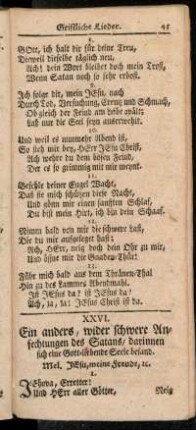 Geistliche Lieder. 45
8.
GOtt, ich halt dir für deine Treu,
Dieweil dieselbe täglich neu,
Ach! dein Wort bleibet doch mein Trost,
Wenn Satan noch so sehr erbost.
9.
Ich folge dir, mein JEsu, nach
Durch Tod, Versuchung, Creutz und Schmach,
Ob gleich der Feind am Leibe
Laß nur die Seel seyn unverwehrt.
10.
Und weil es nunmehr Abend ist,
So steh mit bey, HErr JEsu Christ,
Ach wehre du dem bösen Feind,
Der es so grimmig mit mir meynt.
11.
Befehle deiner Engel Wacht,
Daß sie mich schützen diese Nacht,
Und gönn mir einen sanften Schlaf,
Du bist mein Hirt, ich bin dein Schaaf.
12.
Nimm bald von mir die schwere Last,
Die du mir aufgeleget hast:
Ach, HErr, neig doch dein Ohr zu mir,
Und öffne mir die Gnaden-Thür:
13.
Führ mich bald aus dem Thränen-Thal
Hin zu des Lammes Abendmahl.
Ist JEsus da? ist JEsus da?
Ach, ja, ja! JEsus Christ ist da.
XXVI.
Ein anders, wider schwere An-
fechtungen des Satans, darinnen
sich eine Gott-liebende Seele befand.
Mel. JEsu, meine Freude, ic.
1.
JEhova, Erretter!
Und HErr aller Götter,
Neig